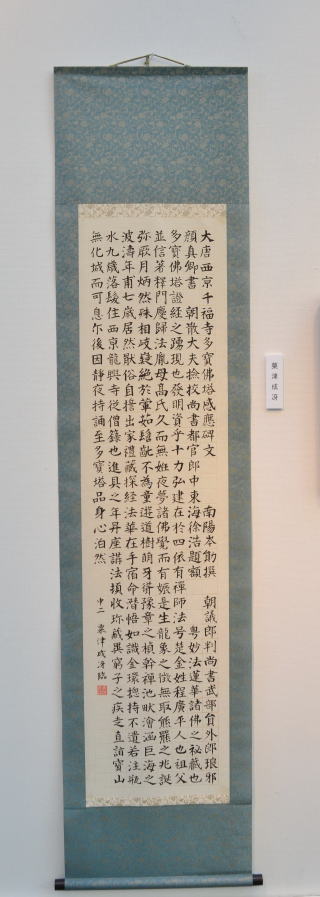 大唐西京千福寺多寶佛塔感應碑文　南陽岑勛撰　朝議郎判尚書武部員外郎琅邪
顏真卿書　朝散大夫撿挍尚書都官郎中東海徐浩題額　粵妙法蓮華諸佛之秘藏也
多寶佛塔證經之踊現也發明資乎十力弘建在於四依有禪師法号楚金姓程廣平人也祖父
並信著釋門慶歸法胤母高氏久而無姙夜夢諸佛覺而有娠是生龍象之徵無取熊羆之兆誕
弥厥月炳然殊相岐嶷絕於葷茹髫齔不為童遊道樹萌牙聳豫章之楨幹禪池畎澮涵巨海之
波濤年甫七歲居然猒俗自誓出家禮藏探經法華在手宿命潛悟如識金環總持不遺若注瓶
水九歲落髮住西京龍興寺從僧籙也進具之年昇座講法頓收珍藏異窮子之疾走直詣寶山
無化城而可息尒後因靜夜持誦至多寶塔品身心泊然
中二　粟津成冴臨
粟津成冴